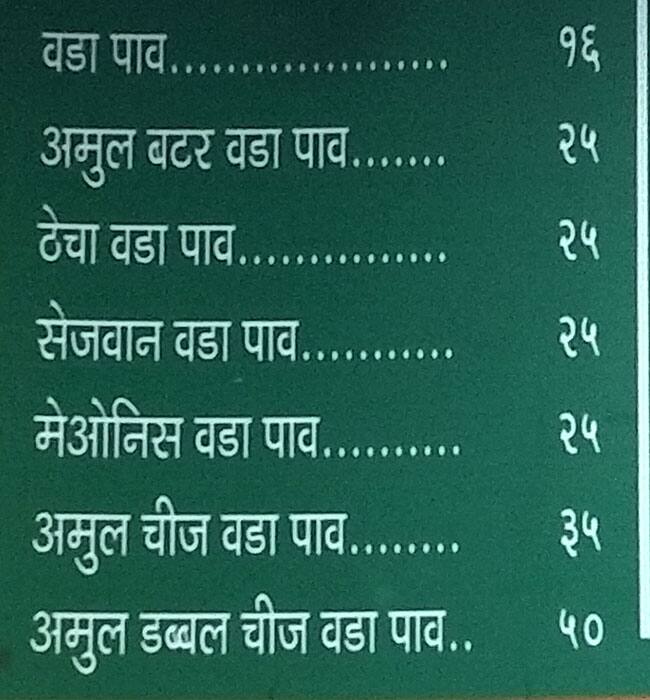 वडा पाव.................... १६
अमुल बटर वडा पाव....... २५
ठेचा वडा पाव............... २५
सेजवान वडा पाव........... २५
मेओनिस वडा पाव.......... २५
अमुल चीज वडा पाव........ ३५
अमुल डब्बल चीज वडा पाव.. ५०